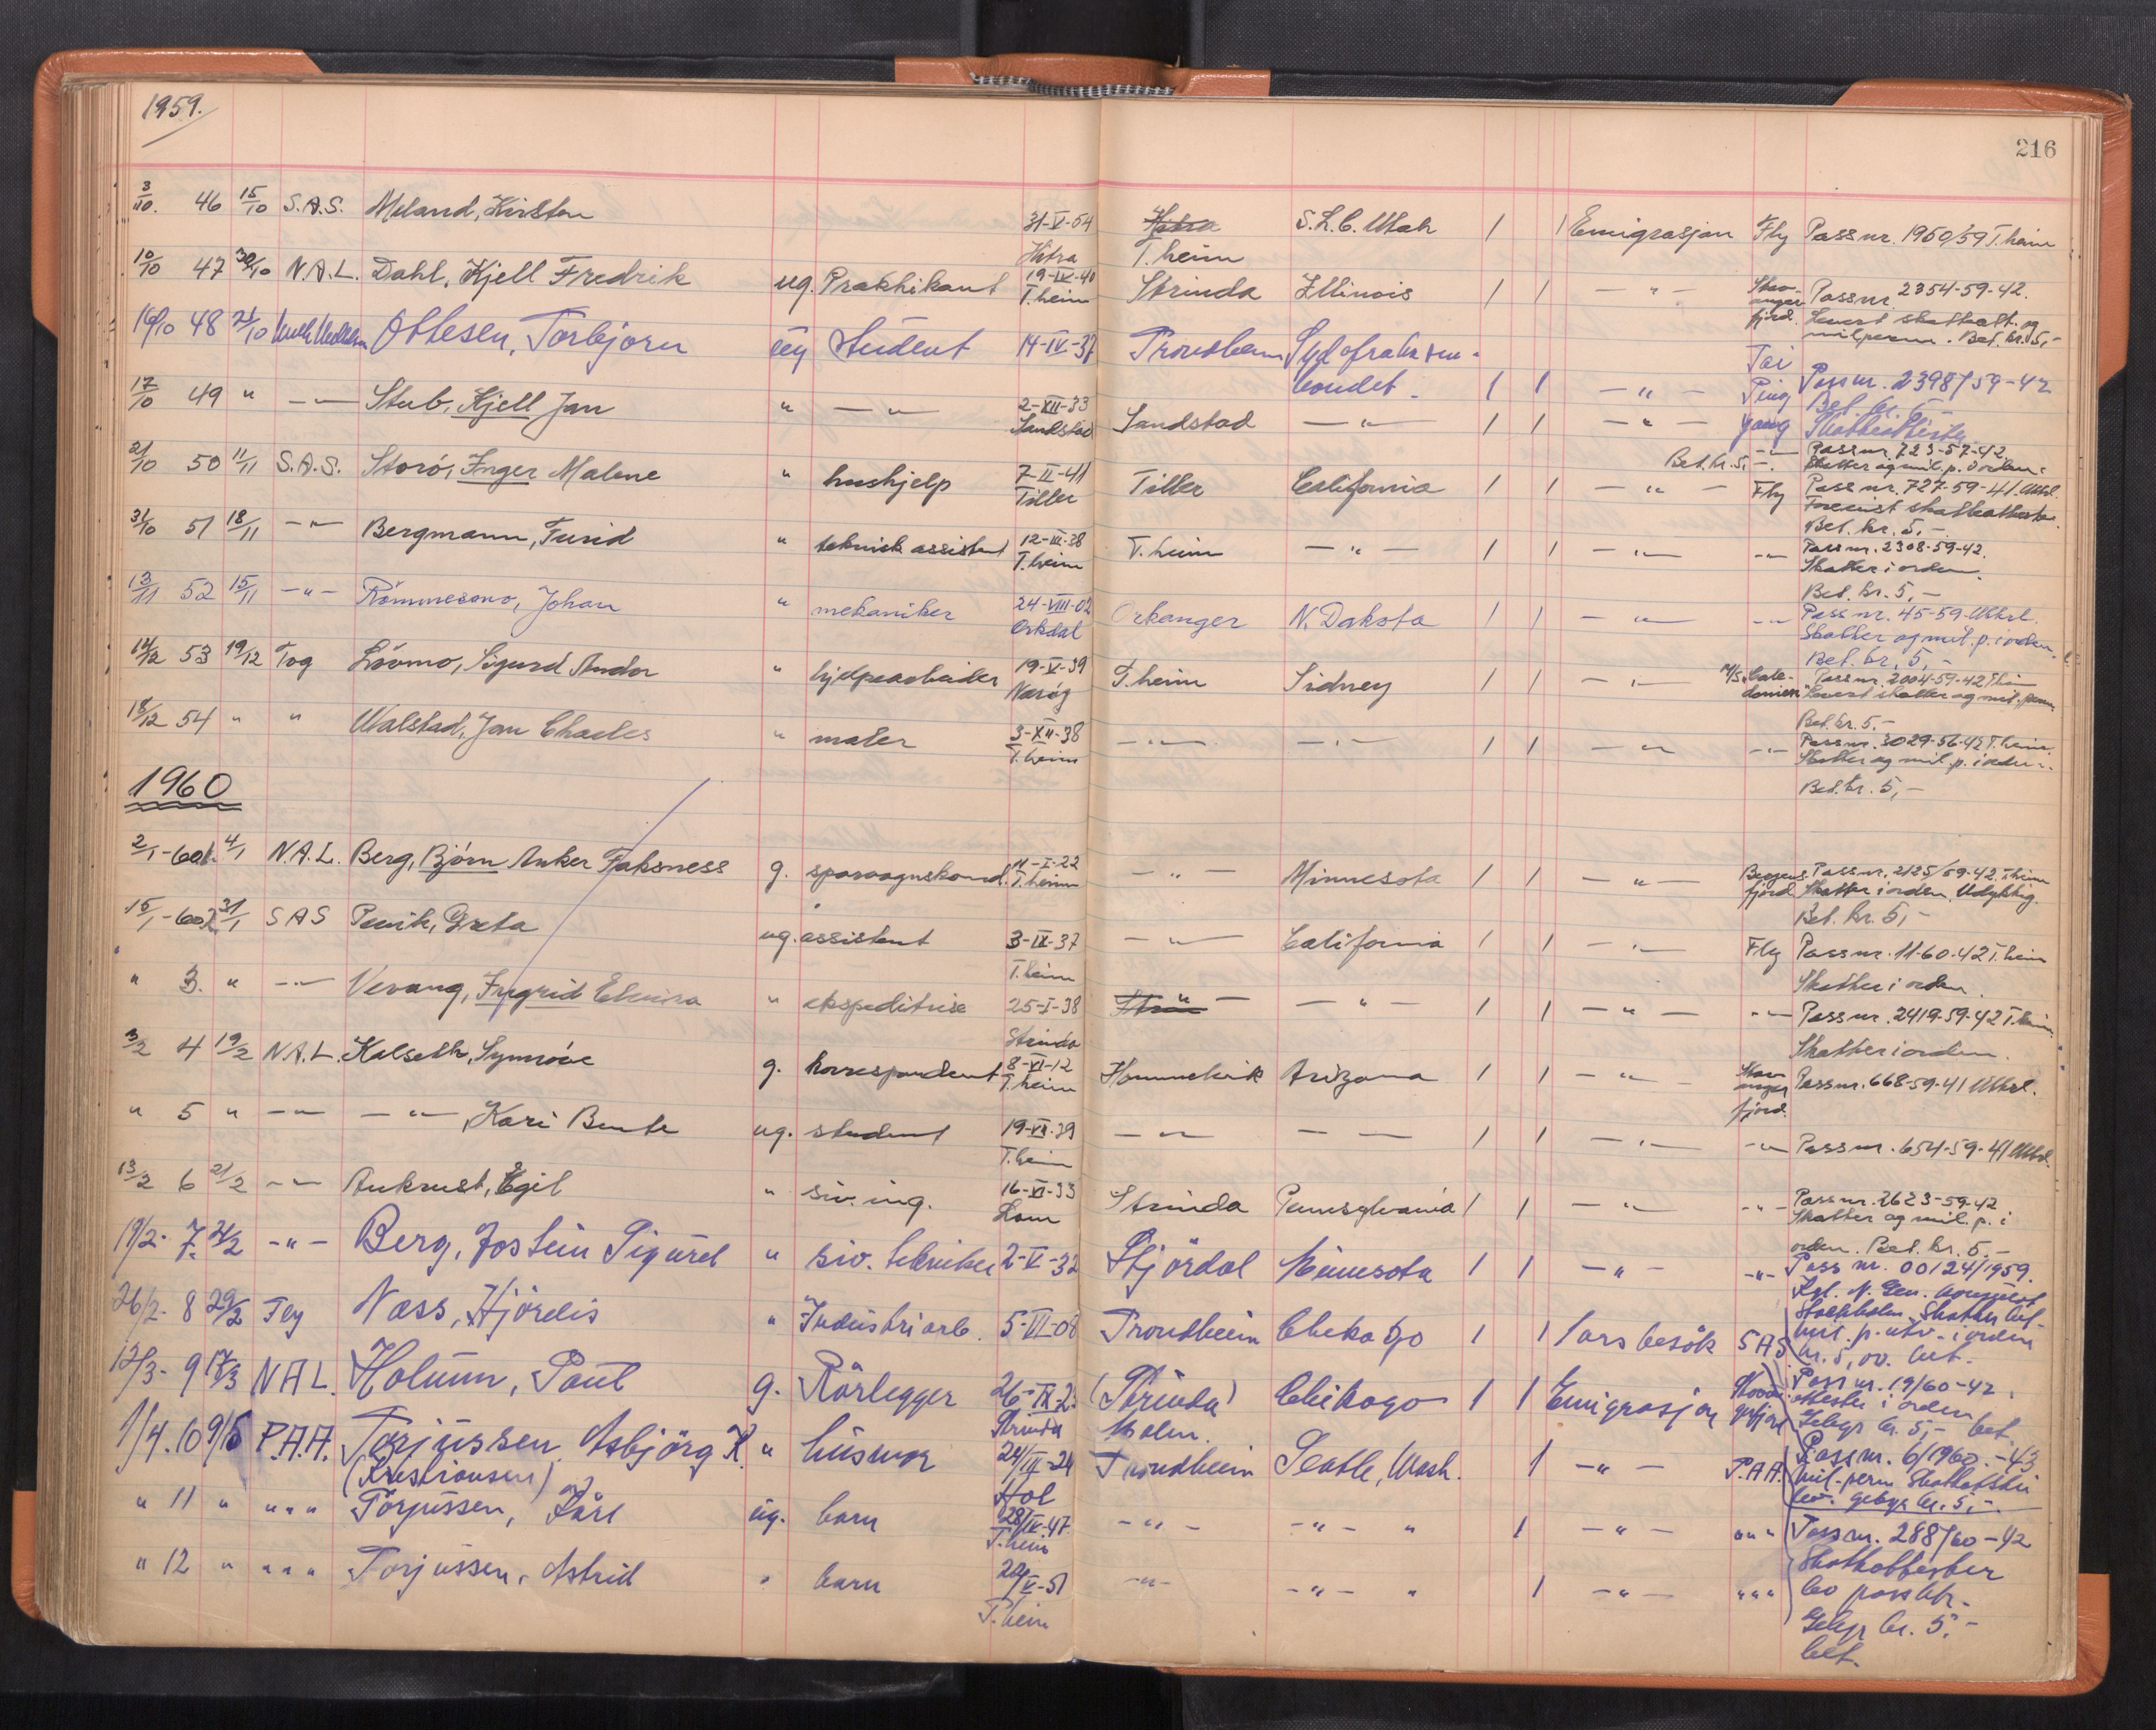 1959.
216
3/10. 46 15/10 S.A.S. Meland, Kirsten 31-V-54 Hitra Hitra T.heim S.L.C. Utah 1 1 Emigrasjon Fly Pass nr. 1950/59 T.heim
10/10 47 30/10 N.A.L. Dahl, Kjell Fredrik ug. Praktikant 19-IV-40 T.heim Strinda Illinois 1 1 - " - Stavangerfjord. Pass nr 2354-59-42.
Levert skatteatt. og milperm. Bet. kr. 5,-
16/10 48 21/10 Ottesen, Torbjørn ug Student 14-IV-37 Trondheim 1 1 - " - Tai Ping Yang Pass nr. 2398/59-42
Bet. kr. 5,-
17/10 49 " - " - Stub, Kjell Jan " - " - 2-XII-33 Sandstad Sandstad - " - 1 1 - " - - " - Pass nr. 723-57-42
Skatter og mil. p. i orden.
Bet. kr. 5,-.
21/10 50 11/11 S.A.S. Storø, Inger Malene " hushjelp 7-II-41 Tiller Tiller California 1 1 - " - Fly Pass nr. 727-59-41. Uttrl.
Forevist skatteattester.
Bet. kr. 5,-
31/10 51 18/11 - " - Bergmann, Turid " teknisk assistent 12-III-38 T.heim T.heim - " - 1 1 - " - - " - Pass nr. 2308-59-42.
Skatter i orden.
Bet. kr. 5,-
13/11 52 15/11 - " - Rømmesmo, Johan " mekaniker 24-VIII-02 Orkdal Orkanger N. Dakota 1 1 - " - - " - Pass nr. 45-59-Uttrl.
Skatter og mil. p. i orden.
Bet. kr. 5,-
14/12 53 19/12 Tog Løvmo, Sigurd Andor " hjelpearbeider 19-V-39 Nærøy T.heim Sidney 1 1 - " - M/S Caledonien Pass nr. 2004-59-42 T.heim
Levert skatter og mil. perm.
Bet. kr. 5.-
18/12 54 " " Walstad, Jan Charles " maler 3-XII-38 T.heim - " - - " - 1 1 - " - - " - Pass nr. 3029-56-42 T.heim.
Skatter og mil. p. i orden.
Bet. kr. 5,-
1960
2/1-60 1. 4/1 N.A.L. Berg, Bjørn Anker Faksness g. sporvognskond. 11-I-22 T.heim - " - Minnesota 1 1 - " - Bergensfjord Pass nr. 2125/59-42 T.heim
Skatter i orden. Udyktig.
Bet. kr. 5,-
15/1-60 2. 31/1 SAS Penik, Greta ug. assistent 3-IX-37 T.heim - " - California 1 1 - " - Fly Pass nr. 11-60-42 T.heim
Skatter i orden.
" 3. " - " - Vevang, Ingrid Elvira " ekspeditrise 25-I-38 Strinda - " - - " - 1 1 - " - - " - Pass nr. 2419-59-42 T.heim.
Skatter i orden.
3/2 4 19/2 N.A.L. Kalseth, Synnøve g. korrespondent 8-VI-12 T.heim Hommelvik Arizona 1 1 - " - Stavangerfjord. Pass nr. 668-59-41 Uttrl.
" 5 " - " - - " -, Kari Bente ug. student 19-VII-39 T.heim - " - - " - 1 1 - " - - " - Pass nr. 654-59-41 Uttrl.
13/2 6 21/2 - " - Aukrust, Egil " siv. ing. 16-XI-33 Lom Strinda Pennsylvania 1 1 - " - - " - Pass nr. 2623-59-42
Skatter og mil. p. i
orden. Bet. kr. 5.-
19/2- 7. 21/2 - " - Berg, Jostein Sigurd " siv. tekniker 2-V-32 Stjørdal Minnesota 1 1 - " - - " - Pass nr. 00124/1959.
Kgl. N. Gen. konsulat
Stockholm. Skatter
mil. p. utv. i orden
kr. 5,00. bet.
26/2- 8 29/2 Fly Næss, Hjördis " Industriarb. 5-VI-08 Trondheim Chikago 1 1 1 års besøk SAS
12/3- 9 17/3 NAL. Holumn, Paul g. Rørlegger 26-IX-2 Strinda (Strinda) Malm. Chikago 1 1 Emigrasjon Pass nr. 19/60-42.
attester i orden
Gebyr kr. 5,- bet.
1/4. 10 9/5 P.A.A. Torjussen Asbjörg K. (Kristiansen) " husmor 24/III-24 Hol Trondheim Seatle, Wash. 1 - " - P.A.A. Pass nr. 6/1960.-43
mil. perm. Skatteattest
lev. gebyr kr. 5,-
" 11 " " " " Torjussen, Kåre ug. barn 28/IV.47. T.heim - " - - " - " 1 - " - " " " Pass nr. 288/60-42
Skatteattester
" 12 " " " " Torjussen, Astrid " barn 22/V-51 T.heim - " - - " - " 1 - " - " " "
Gebyr kr. 5,-
bet.